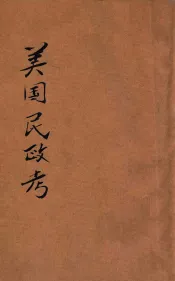 美国民政考